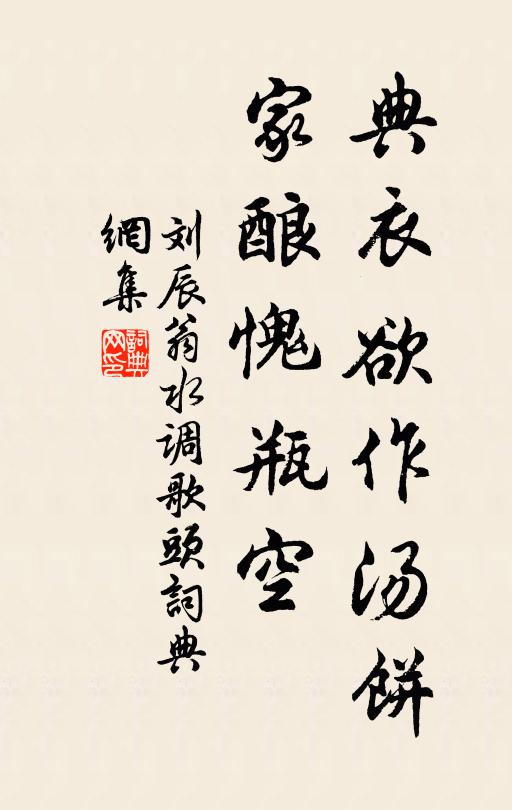 典衣欲作汤餅
家酿愧瓶空
刘辰翁水调歌頭詞典
網集
詞典
网印